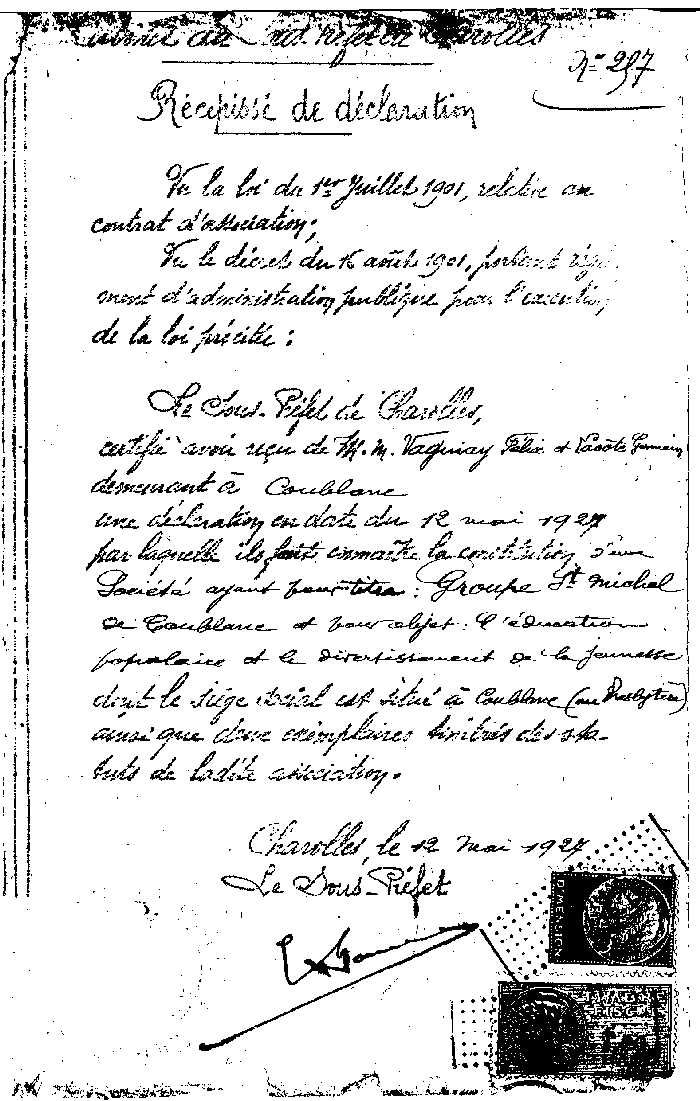 Cabinet du Sous-Préfet de Charolles
N° 297
Récépissé de déclaration
Vu la loi du 1er Juillet 1901, relative au
contrat d'association;
Vu le décret du 16 août 1901, portant règle-
ment d'administration publique pour l'exécution
de la loi précitée :
Le Sous-Préfet de Charolles,
certifie avoir reçu de M.M. Vaginay Félix et Lacôte Germain
demeurant à Coublanc
une déclaration en date du 12 mai 1927
par laquelle ils font connaître la constitution d'une
Société ayant pour titre : Groupe St Michel
de Coublanc et pour objet : l'éducation
populaire et le divertissement de la jeunesse
dont le siège social est situé à Coublanc (au Presbytère)
ainsi que deux exemplaires timbrés des sta-
tuts de ladite association.
Charolles, le 12 Mai 1927
Le Sous-Préfet